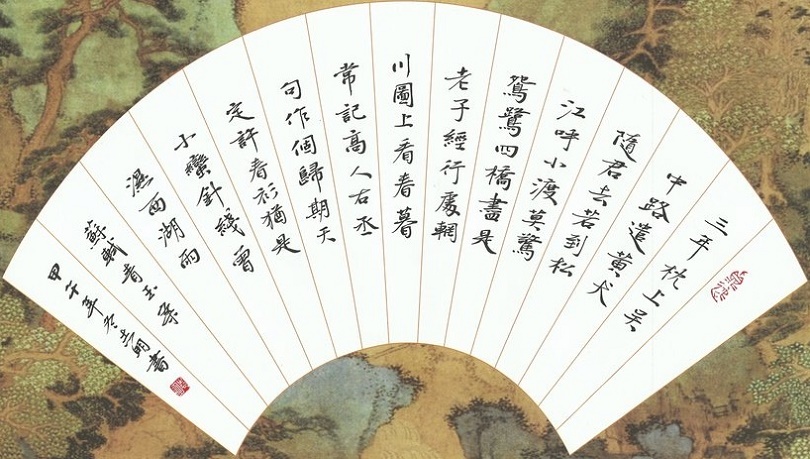 三年枕上吳
中路遣黃犬
隨君去若到松
江呼小渡莫驚
鴛鷺四橋盡是
老子經行處輞
川圖上看春暮
常記高人右丞
句作個歸期天
定許春衫猶是
小蠻針綫曾
濕西湖雨
蘇軾青玉案
甲午年冬志明書